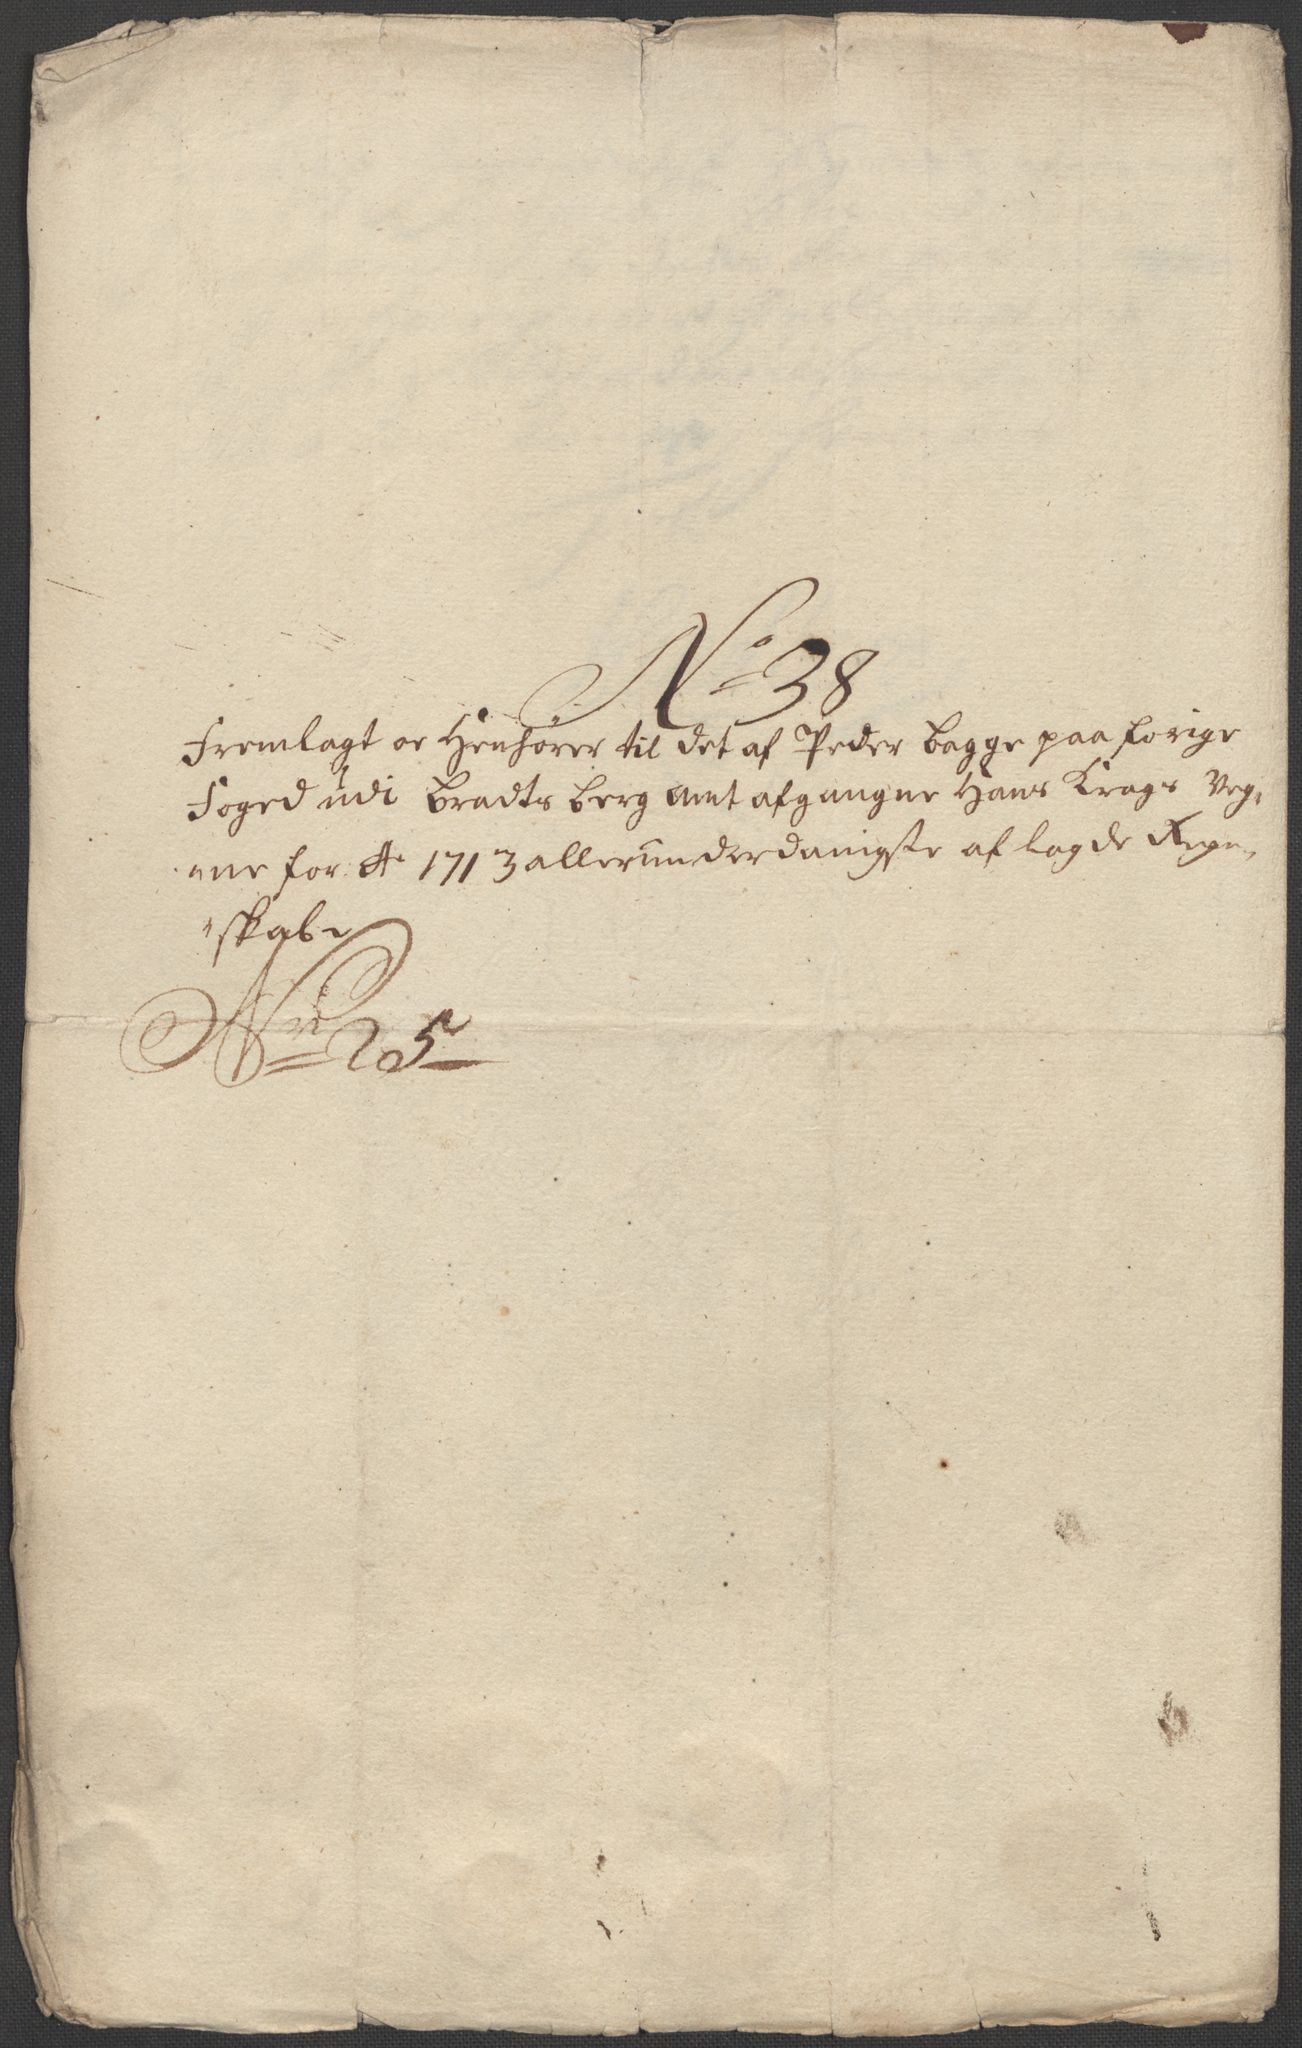 No 38
Fremlagt oc Henhører til det af Peder Bagge paa forige
Foged udi Bradtsberg amt afgangne Hans Krags Veg,
nne for Ao 1713 allerunderdanigste aflagde Regn,
skab
No 25